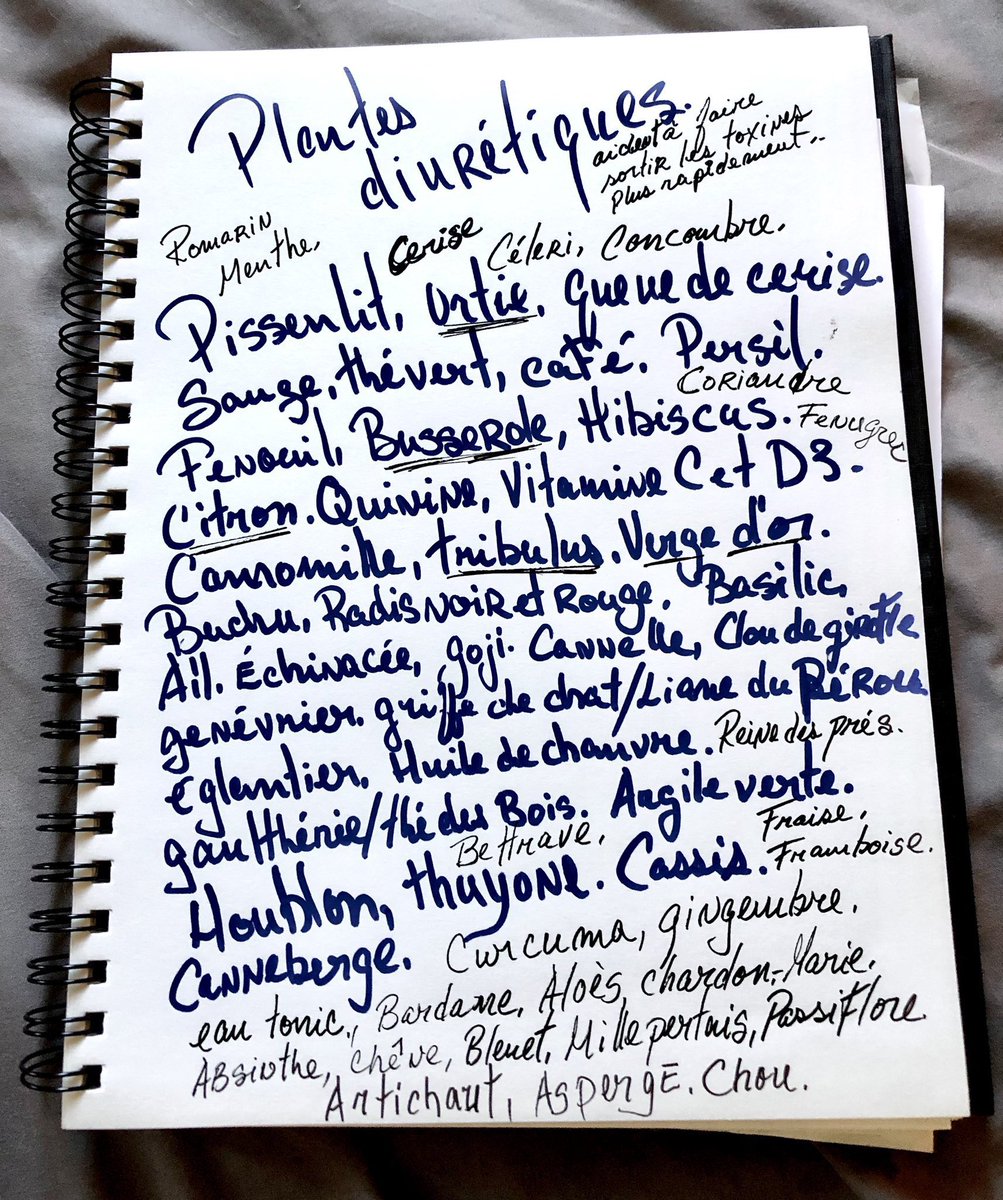 Plantes
diurétiques.
aident à faire
sortir les toxines
plus rapidement..
Romarin
Menthe.
Cerise
Céleri, Concombre.
Pissenlit, Ortie. Queue de cerise.
Sauge, thé vert, café. Persil.
Coriandre
Fenouil, Busserole, Hibiscus.
Fenugrec
Citron. Quinine, Vitamine C et D3.
Camomille, tribulus. Verge d'or.
Buchu, Radis noir et rouge. Basilic.
Ail. Échinacée, goji. Cannelle, Clou de girofle
genévrier. griffe de chat/Liane du Pérou
églantier. Huile de chanvre. Reine des prés.
gaulthérie/thé des Bois. Argile verte.
Bettrave.
Fraise.
Houblon, thuyone. Cassis.
Framboise.
Canneberge. Curcuma, gingembre.
eau tonic., Bardane, Aloès, chardon-Marie.
Absinthe, chêne, Bleuet, Millepertuis, Passiflore.
Artichaut, Asperge. Chou.